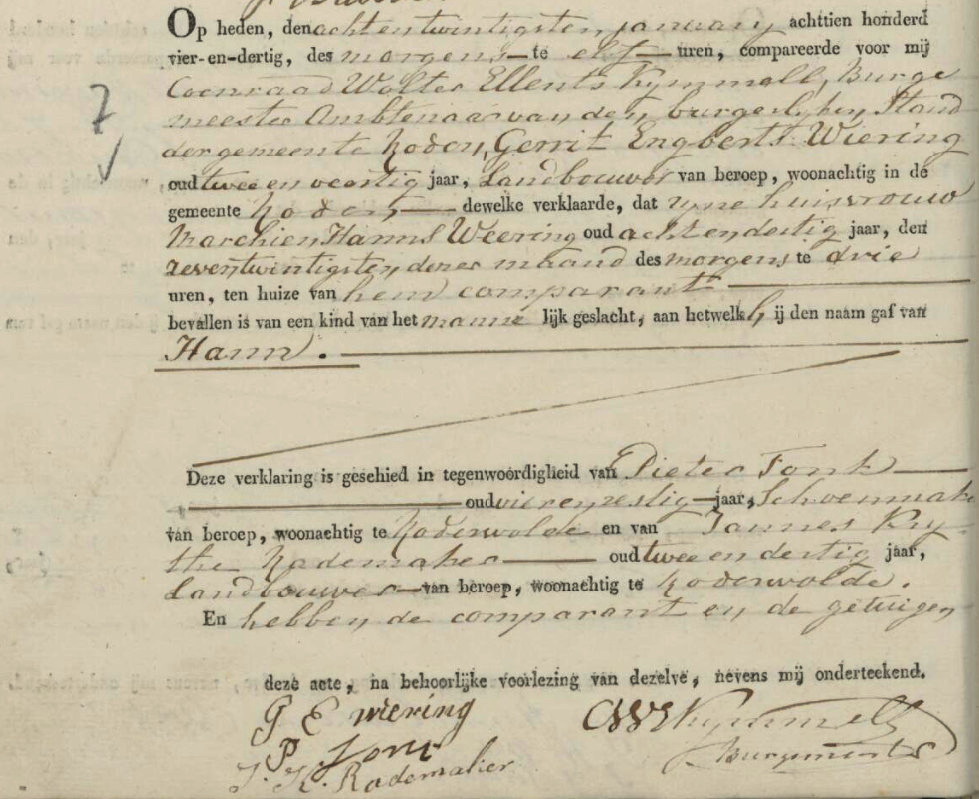 Op heden, den achtentwintigsten january achttien honderd
vier-en-dertig, des morgens te elf uren, compareerde voor mij
Coenraad Wolter Ellents Kymmell, Burge
meester Ambtenaar van den burgerlyken Stand
der gemeente Roden, Gerrit Engberts Wiering
oud twee en veertig jaar, Landbouwer van beroep, woonachtig in de
gemeente Roden dewelke verklaarde, dat zyne huisvrouw
Marchien Hanns Weering oud acht en dertig jaar, den
zeventwintigsten dezer maand des morgens te drie
uren, ten huize van hem comparant
bevallen is van een kind van het manne lijk geslacht, aan hetwelk hij den naam gaf van
Hann.
7
Deze verklaring is geschied in tegenwoordigheid van Pieter Tonk
oud vier en zestig jaar, Schoenmake
van beroep, woonachtig te Roderwolde en van Jannes Kry
the Rademaker oud twee en dertig jaar,
Landbouwer van beroep, woonachtig te Roderwolde.
En hebben de comparant en de getuigen
deze acte, na behoorlijke voorlezing van dezelve, nevens mij onderteekend.
G E wiering
CWEKymmell
P.
Burgemeester
J. K. Rademaker